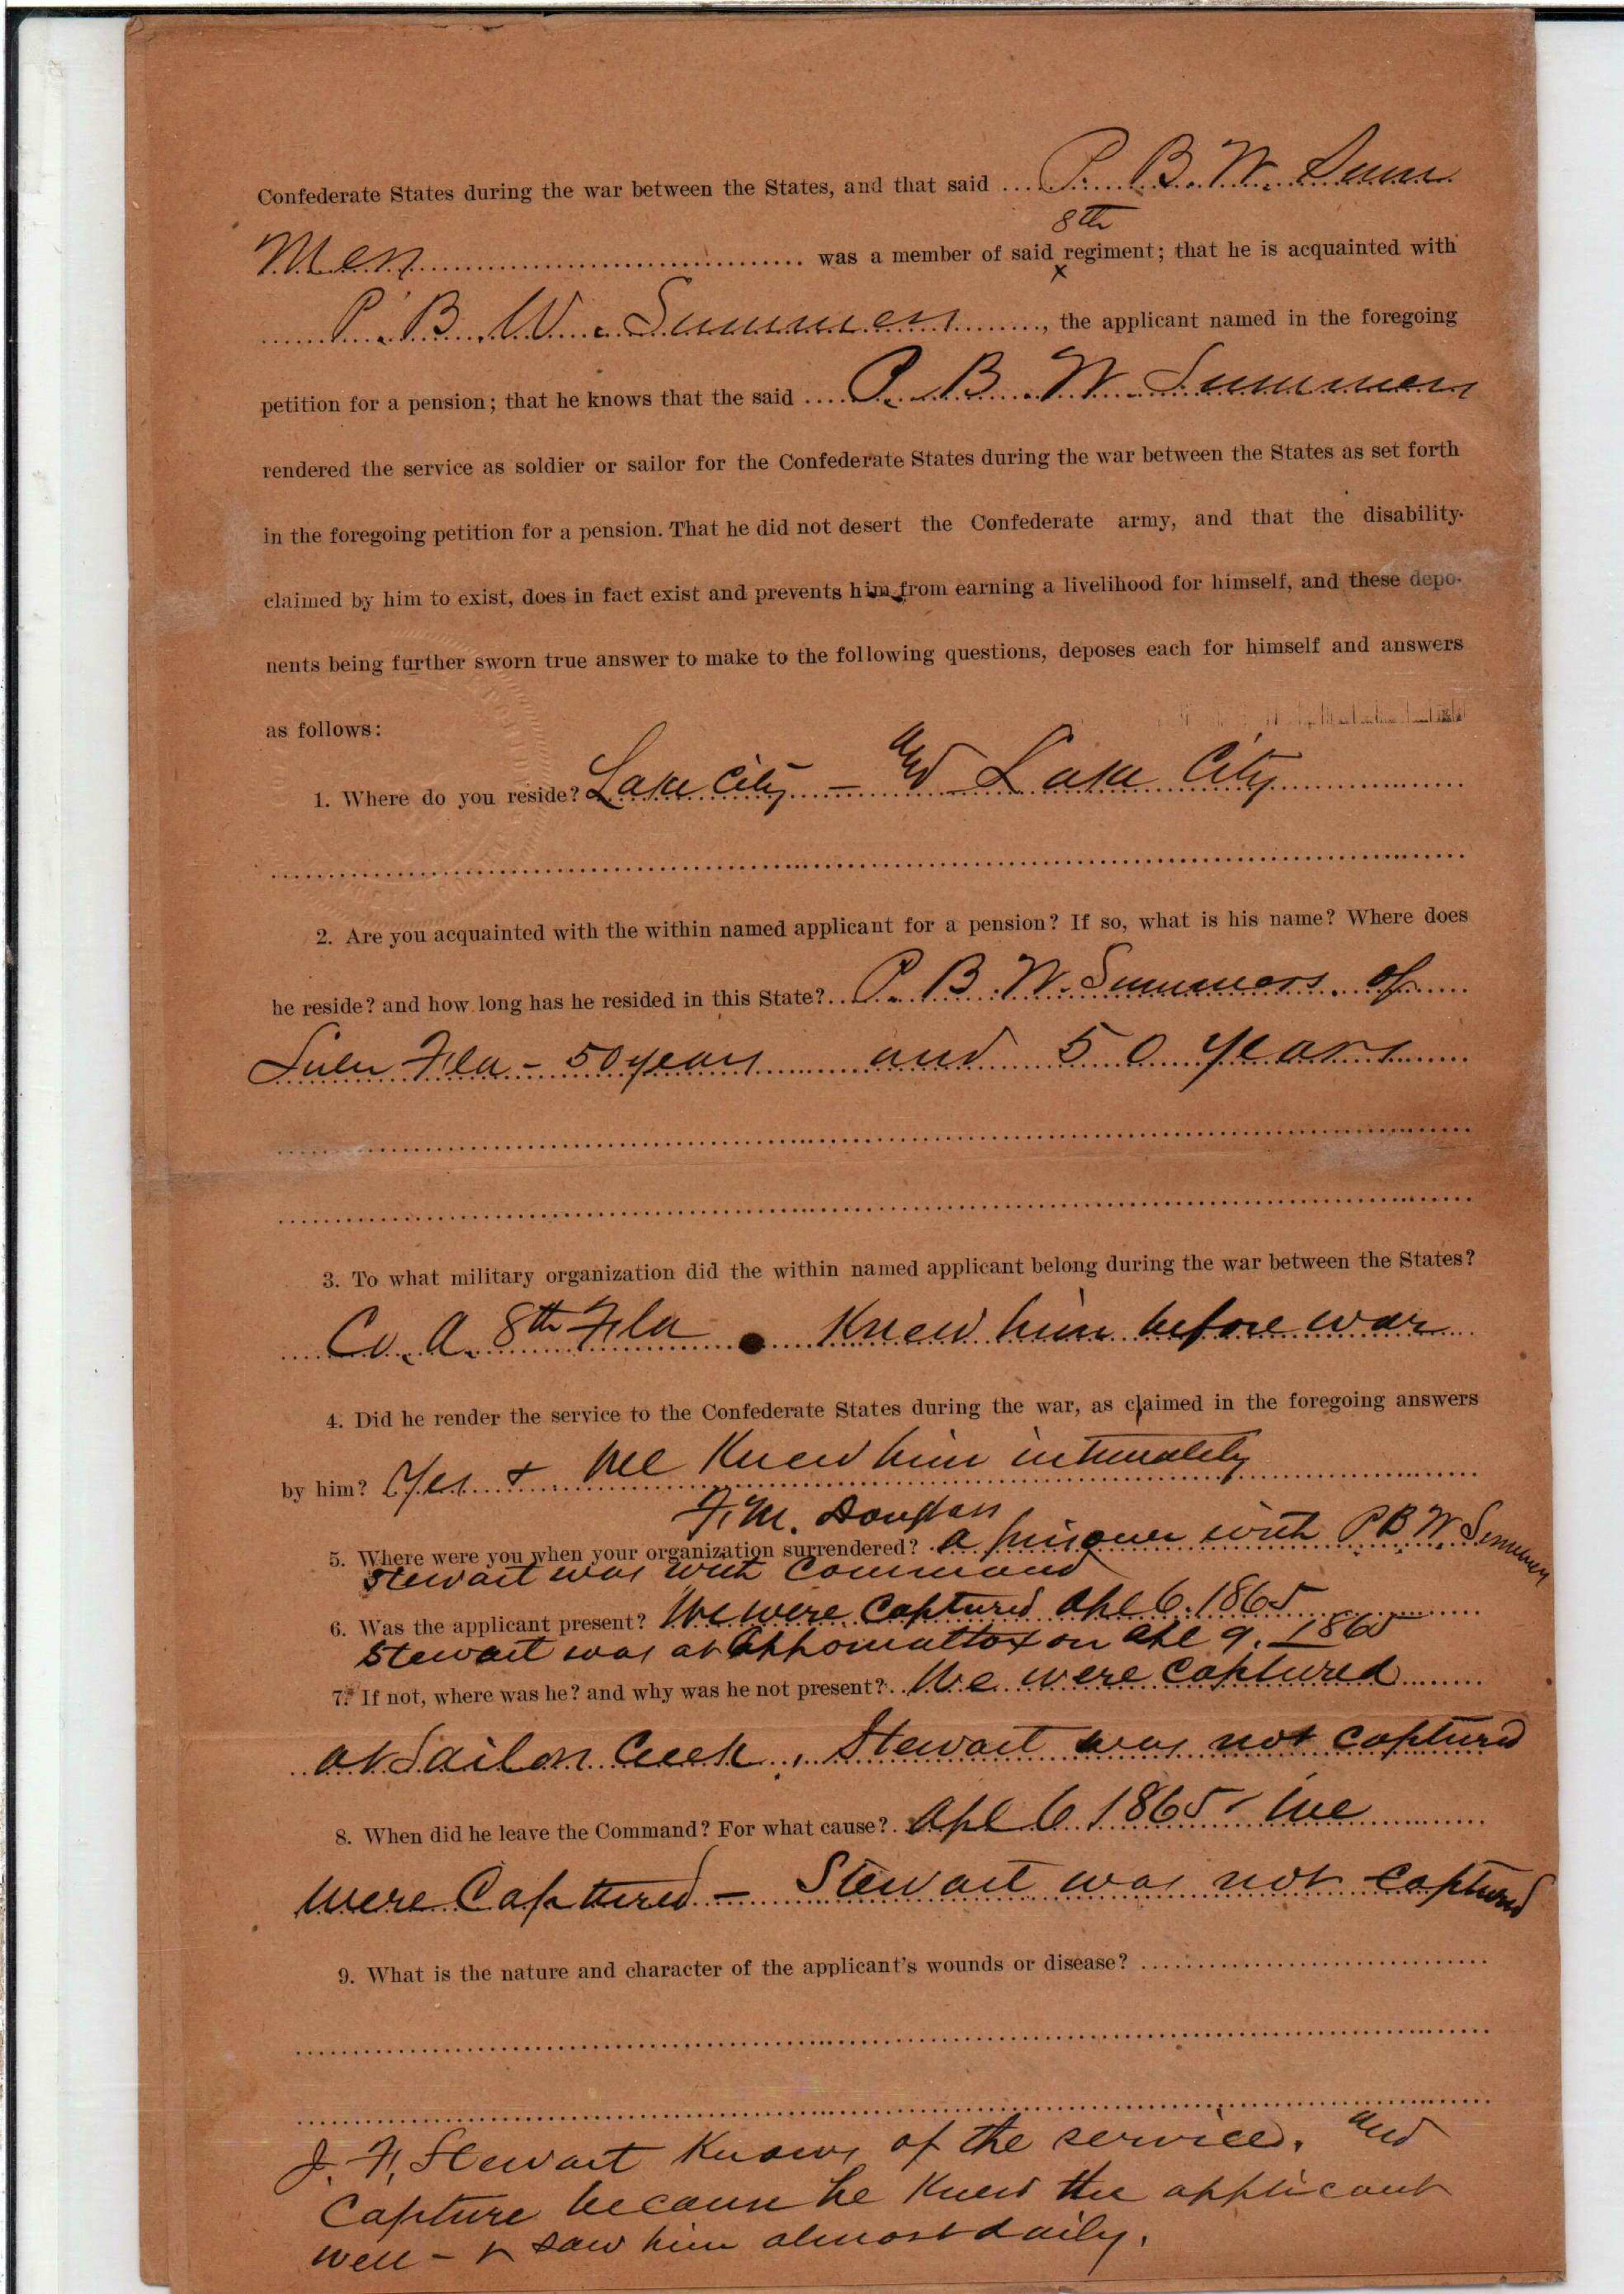 Confederate States during the war between the States, and that said P. B. W. Sum
8th
mers was a member of said x regiment; that he is acquainted with
P. B. W. Summers, the applicant named in the foregoing
petition for a pension; that he knows that the said P. B. W. Summers
rendered the service as soldier or sailor for the Confederate States during the war between the States as set forth
in the foregoing petition for a pension. That he did not desert the Confederate army, and that the disability
claimed by him to exist, does in fact exist and prevents him from earning a livelihood for himself, and these depo-
nents being further sworn true answer to make to the following questions, deposes each for himself and answers
as follows:
1. Where do you reside? Lake City - and Lake City
2. Are you acquainted with the within named applicant for a pension? If so, what is his name? Where does
he reside? and how long has he resided in this State? P. B. W. Summers of
Lulu Fla - 50 years and 50 years
3. To what military organization did the within named applicant belong during the war between the States?
Co. A. 8th Fla Knew him before war
4. Did he render the service to the Confederate States during the war, as claimed in the foregoing answers
by him? Yes & we Knew him intimately
F. M. Douglass
5. Where were you when your organization surrendered? a prisoner with P B W Summers
Stewart was with Command
6. Was the applicant present? We were Captured Apl 6. 1865
Stewart was at Appomattox on Apl 9. 1865
7. If not, where was he? and why was he not present? We were captured
at Sailors Creek, Stewart was not captured
8. When did he leave the Command? For what cause? Apl 6 1865 we
were Captured - Stewart was not captured
9. What is the nature and character of the applicant's wounds or disease?
J. F. Stewart Knows of the services, and
Capture because he Knew the applicant
well - & saw him almost daily.